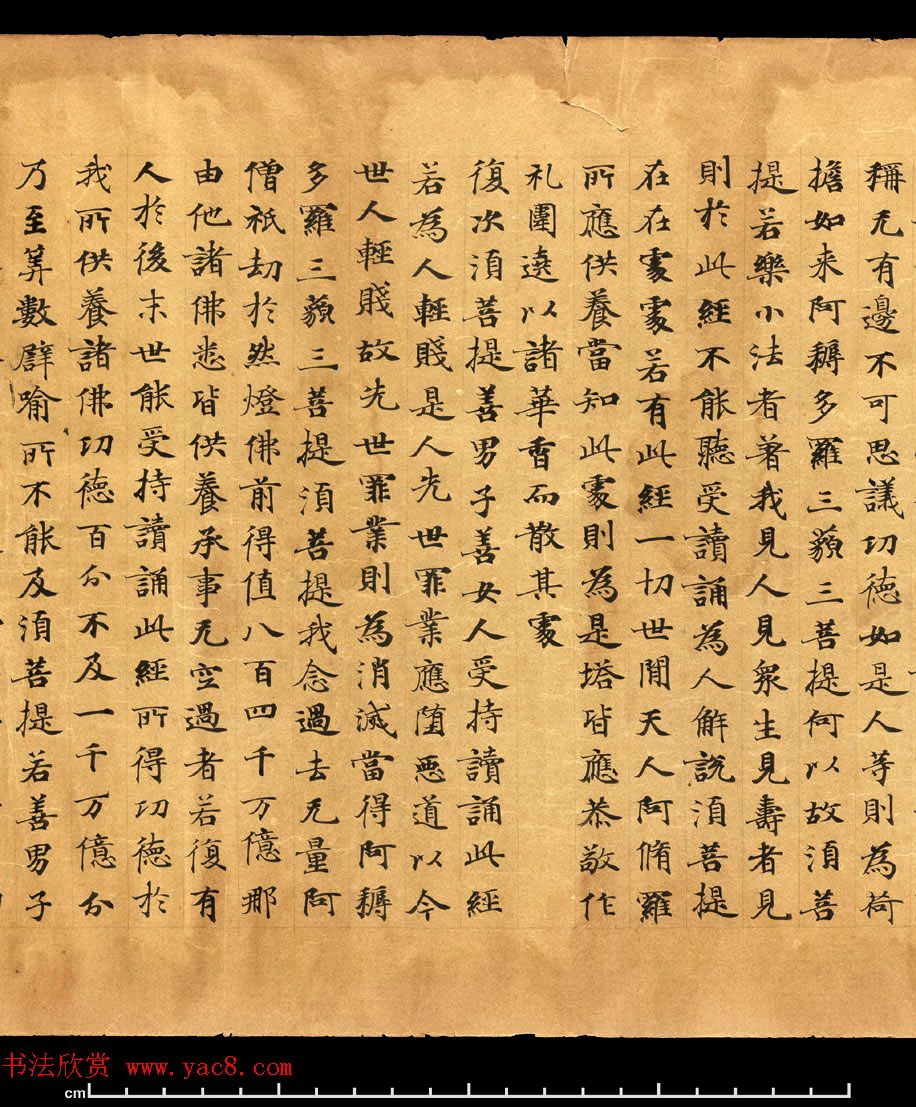 稱无有邊不可思議功德如是人等則為荷
擔如来阿耨多羅三藐三菩提何以故須菩
提若樂小法者著我見人見眾生見壽者見
則於此經不能聽受讀誦為人解說須菩提
在在處處若有此經一切世間天人阿脩羅
所應供養當知此處則為是塔皆應恭敬作
礼圍遶以諸華香而散其處
復次須菩提善男子善女人受持讀誦此經
若為人輕賤是人先世罪業應堕惡道以今
世人輕賤故先世罪業則為消滅當得阿耨
多羅三藐三菩提須菩提我念過去无量阿
僧祇劫於然燈佛前得值八百四千万億那
由他諸佛悉皆供養承事无空過者若復有
人於後末世能受持讀誦此經所得功德於
我所供養諸佛功德百分不及一千万億分
乃至筭數譬喻所不能及須菩提若善男子
书法欣赏 www.yac8.com
cm